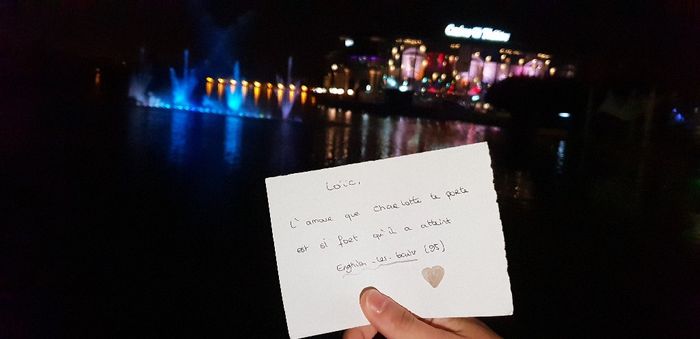 Casino Théâtre
Loïc,
L'amour que Charlotte te porte
est si fort qu'il a atteint
Enghien-les-bains (95)